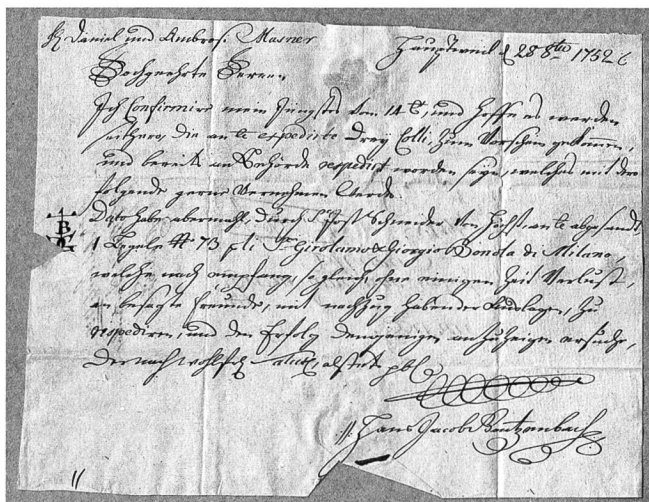 Hh Daniel und Ambrosi: Masner Hauptweil d 28 8bre 1752
Hochgeehrte Herren
Ich Confirmire mein Jüngstes vom 14 und hoffe es werden
seithero, die an expedirte drey Colli, zum Vorschein gekommen,
und bereits an Behörde expedirt worden seyn, welches mit dem
folgende gerne Vernehmen Werde.
Dato habe abermahl durch Schneider von abgesandt
B
1 73 Girolamo & Giorgio Bonola di Milano,
welche nach empfang, so gleich, ohne einigen Zeit Verlust,
an besagte freunde, mit nachzug habender Auslagen, zu
expediren, und den Erfolg demjenigen anzuzeigen ersuche,
Der nach
Hans Jacob Gonzenbach